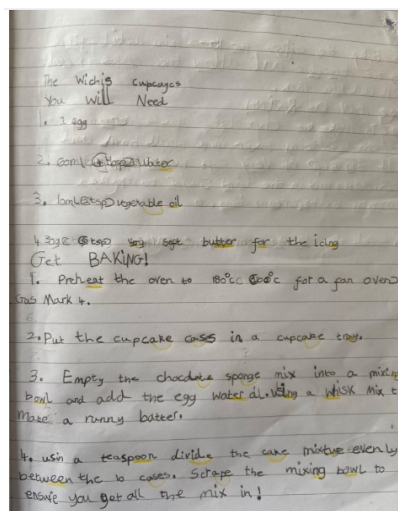 The Wichis cupcayes
You Will Need
1. 1 egg
2. 60ml (4tbsp) water
3. 10ml (2tsp) vegetable oil
4. 30g (6tsp) soft butter for the icing
Get BAKING!
1. Preheat the oven to 180°c 160°c for a fan oven)
Gas Mark 4.
2. Put the cupcake cases in a cupcake tray.
3. Empty the chocolate sponge mix into a mixing
bowl and add the egg water using a whisk mix t
make a runny batter.
4. usin a teaspoon divide the cake mixture evenly
between the 10 cases. Scrape the mixing bowl to
ensure you get all the mix in!